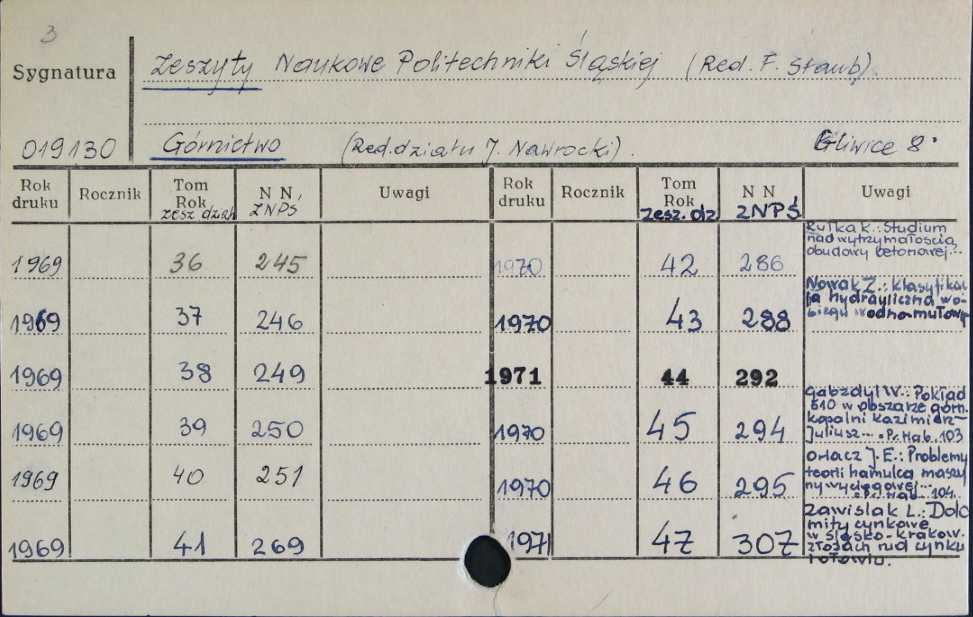 3
Sygnatura Zeszyty Naukowe Politechniki Śląskiej (Red. F. Staub).
019130 Górnictwo (Red. działu J. Nawrocki). Gliwice 8°
Rok druku Rocznik Tom Rok zesz dział N N, ZNPŚ Uwagi Rok druku Rocznik Tom Rok zesz. dz N N ZNPŚ Uwagi
1969 36 245 1970 42 286 Kulka K.: Studium
nad wytrzymałością
obudowy betonowej...
1969 37 246 1970 43 288 Nowak Z.: Klasyfika
ja hydrauliczna wo-
1969 38 249 1971 44 292
1969 39 250 1970 45 294 Gabzdyl W.: Pokład
510 w obszarze górn.
kopalni Kazimierz-
Juliusz... Pr. Hab. 103
1969 40 251 1970 46 295 J. E.: Problemy
teorii hamulca maszy
ny wyciągowej...
Pr. Hab. 104.
1969 41 269 1971 47 307 Zawiślak L.: Dolo
mity cynkowe
w śląsko-krakow.
złożach rud cynku
i ołowiu.